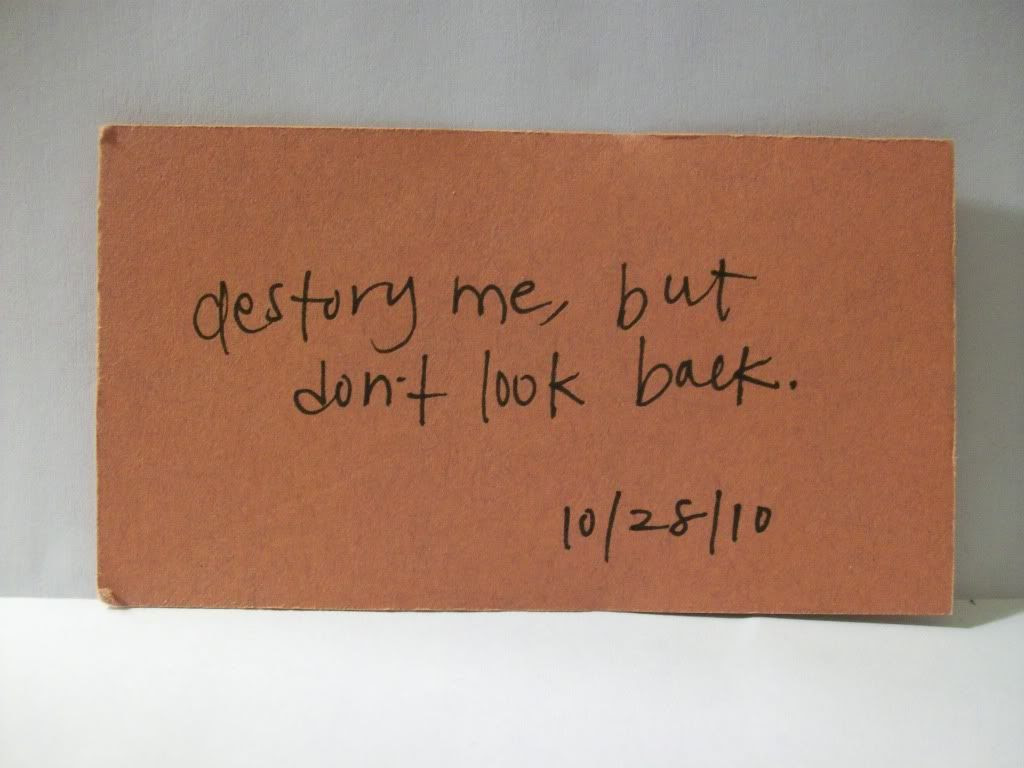 destory me, but
don't look back.
10/28/10